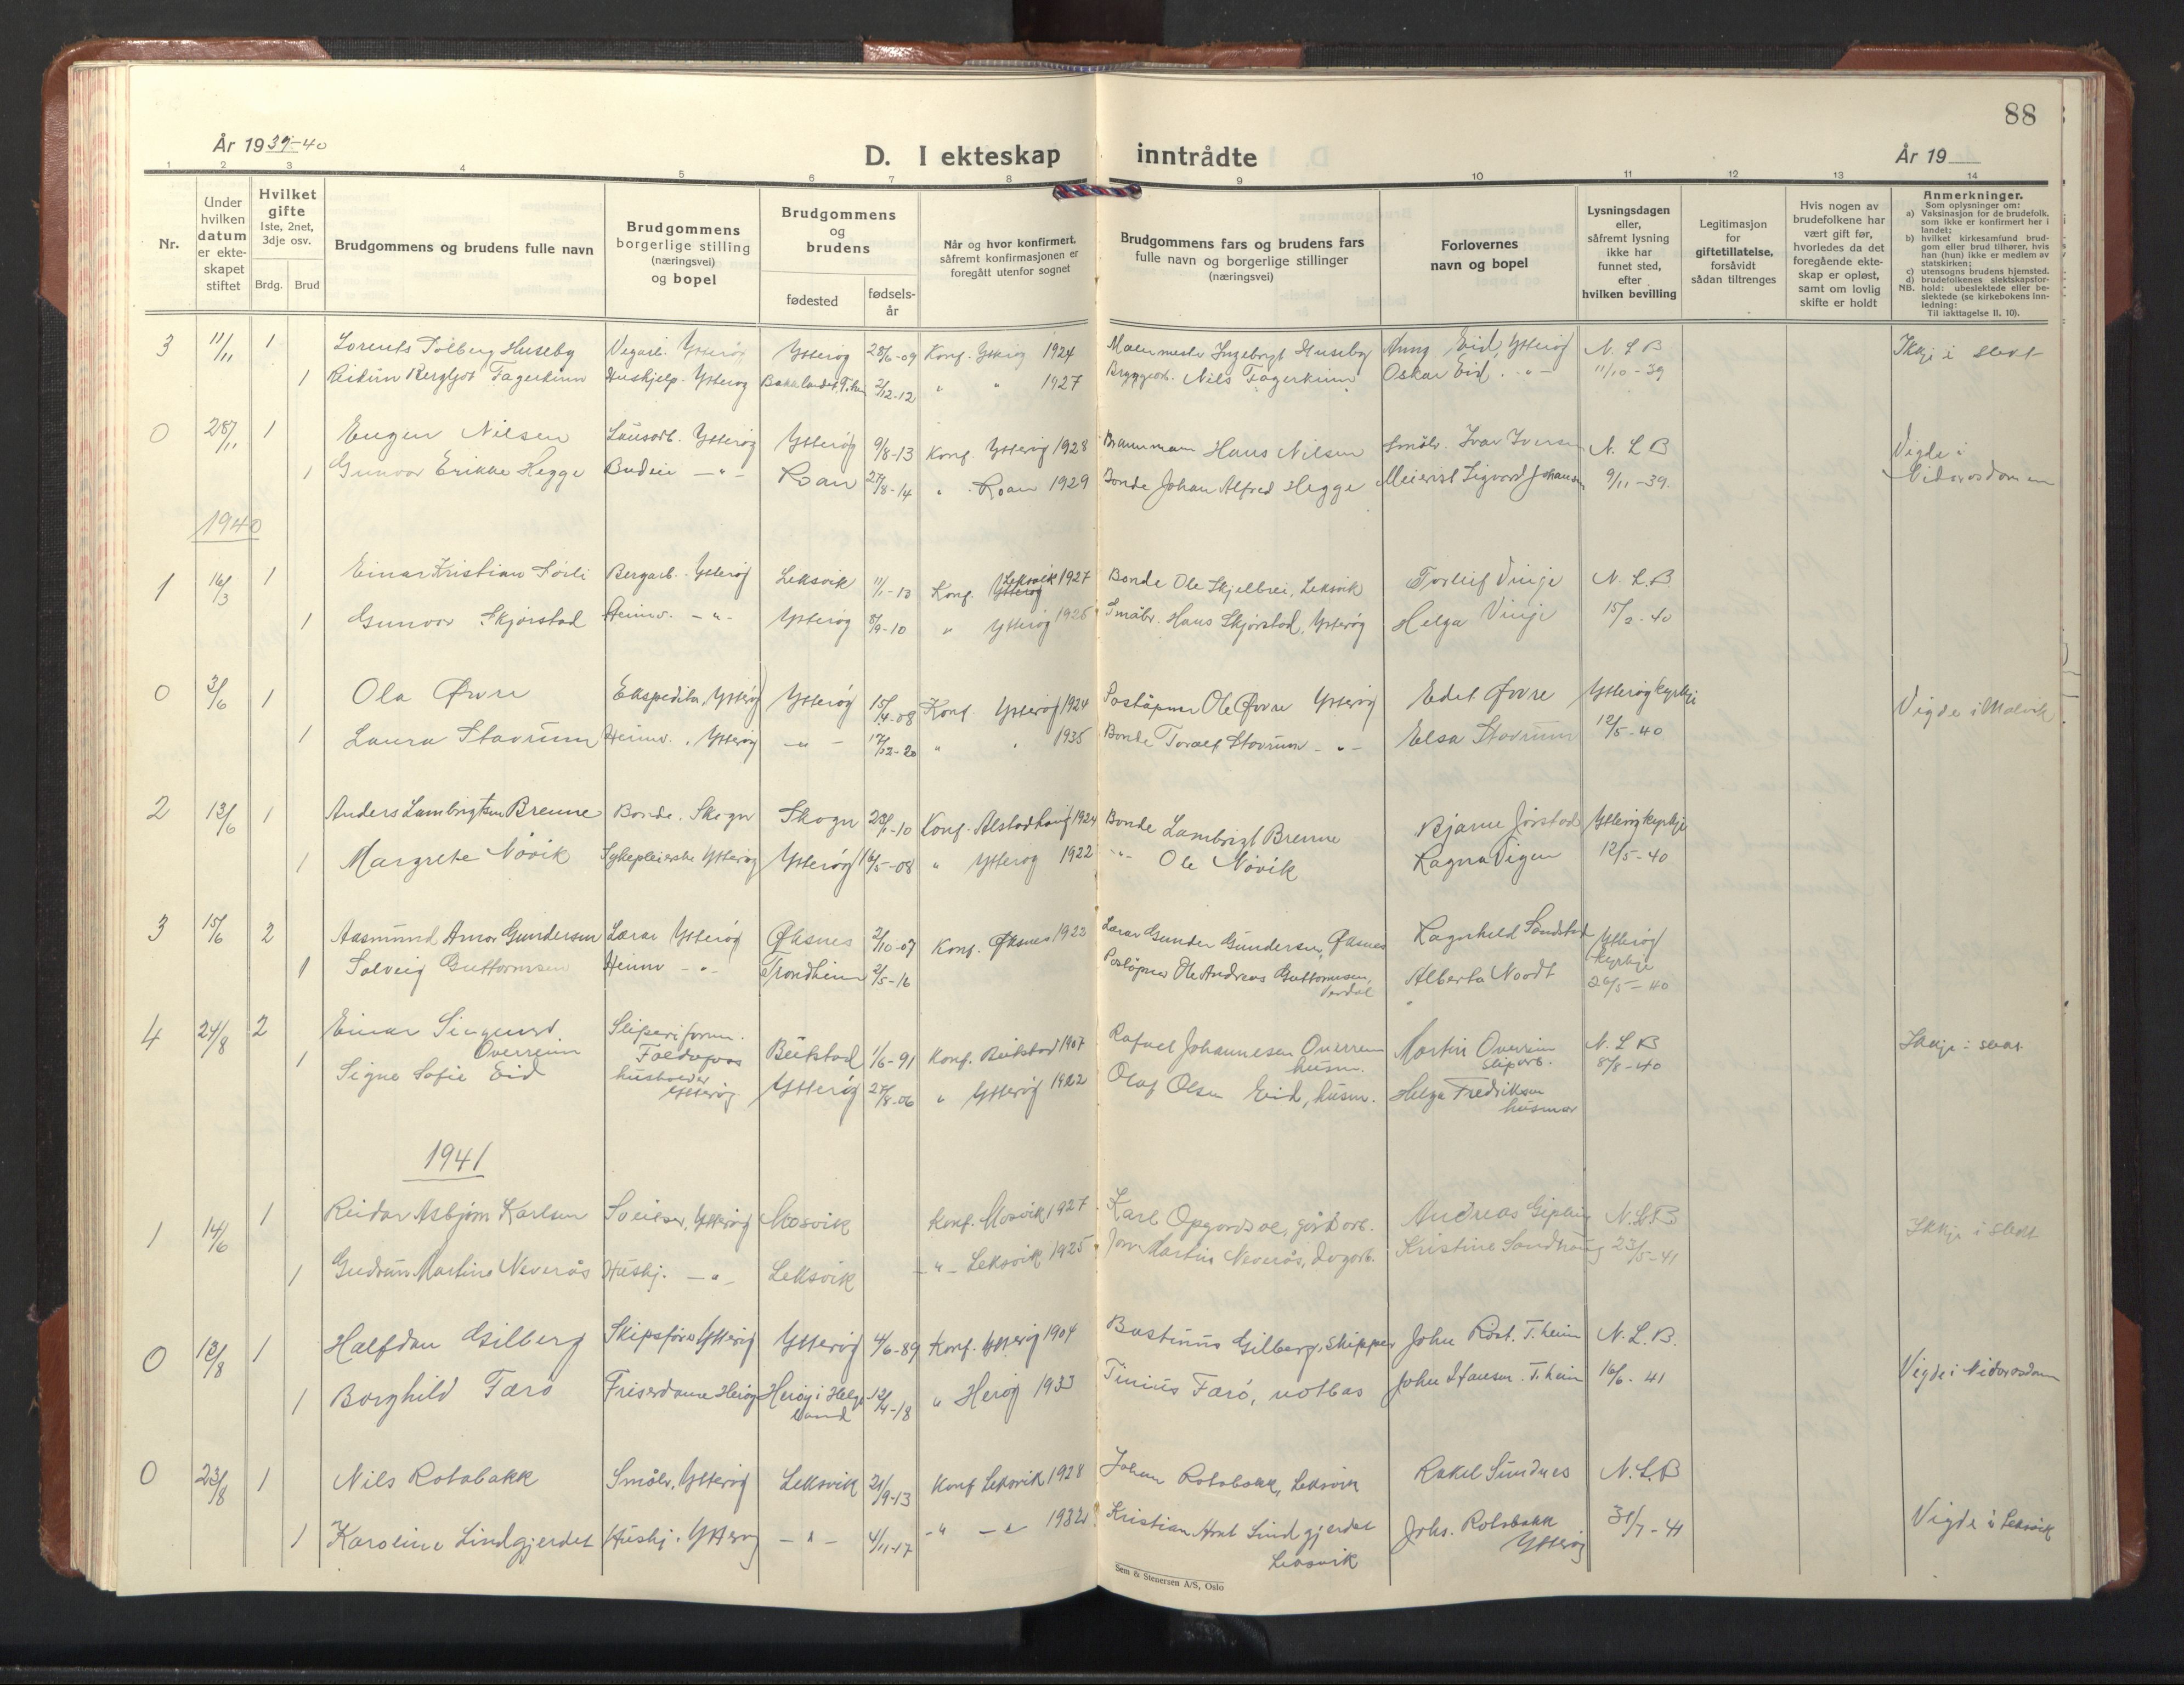 88
År 19 39-40
D. I ekteskap inntrådte
År 19
1 2 3 4 5 6 7 8 9 10 11 12 13 14
Nr.
Under
hvilken
datum
er ekte-
skapet
stiftet
Hvilket
gifte
1ste, 2net,
3dje osv.
Brdg. Brud
Brudgommens og brudens fulle navn
Brudgommens
borgerlige stilling
(næringsvei)
og bopel
Brudgommens
og
brudens
fødested
fødsels-
år
Når og hvor konfirmert,
såfremt konfirmasjonen er
foregått utenfor sognet
Brudgommens fars og brudens fars
fulle navn og borgerlige stillinger
(næringsvei)
Forlovernes
navn og bopel
Lysningsdagen
eller,
såfremt lysning
ikke har
funnet sted,
efter
hvilken bevilling
Legitimasjon
for
giftetillatelse,
forsåvidt
sådan tiltrenges
Hvis nogen av
brudefolkene har
vært gift før,
hvorledes da det
foregående ekte-
skap er opløst,
samt om lovlig
skifte er holdt
Anmerkninger.
Som oplysninger om:
a) Vaksinasjon for de brudefolk,
som ikke er konfirmert her i
landet;
b) hvilket kirkesamfund brud-
gom eller brud tilhører, hvis
han (hun) ikke er medlem av
statskirken;
c) utensogns brudens hjemsted.
d) brudefolkenes slektskapsfor-
NB. hold: ubeslektede eller be-
slektede (se kirkebokens inn-
ledning:
Til iakttagelse II. 10).
3 11/11 1 Lorents Solberg Huseby Vegarb. Ytterøy Ytterøy 28/6-09 Konf. Ytterøy 1924 Malermester Ingebrigt Huseby Anna Eid, Ytterøy N. L B Ikkje i slekt
1 Bergljot Fagerheim Hushjelp. Ytterøy Bakalandet, T.heim 2/12-12 " " 1927 Bryggearb. Nils Fagerheim Oskar Eid. - " - 11/10-39
0 28/11 1 Eugen Nilsen Lausarb. Ytterøy Ytterøy 9/8-13 Konf. Ytterøy 1928 Hans Nilsen Småbr. Ivar Iversen N. L B Vigde i
1 Gunvor Erikke Hegge Budeie - " - Roan 27/8-14 " Roan 1929 Bonde Johan Alfred Hegge Meierist Sigvard Johansen 9/11-39. Nidarosdomen
1940
1 16/3 1 Einar Kristian Sørli Bergarb. Ytterøy Leksvik 11/1-13 Konf. Leksvik 1927 Bonde Ole Skjelbrei, Leksvik Torleif Vinje N. L. B
1 Gunvor Skjørstad Heimv. - " - Ytterøy 8/9-10 " Ytterøy 1925 Småbr. Hans Skjørstad, Ytterøy Helga Vinje 15/2-40
0 3/6 1 Ola Øvre Ekspeditør, Ytterøy Ytterøy 15/4-08 Konf. Ytterøy 1924 Poståpner Ole Øvre Ytterøy Edet Øvre Ytterøy kyrkje Vigde i Malvik
1 Laura Stavrum Heimv. Ytterøy - " - 17/12-20 " " 1935 Bonde Toralf Stavrum - " - Elsa Stavrum 12/5-40
2 13/6 1 Anders Lambrigtsen Brenne Bonde. Skogn Skogn 23/1-10 Konf. Alstadhaug 1924 Bonde Lambrigt Brenne Bjarne Jørstad Ytterøy kyrkje
1 Margrete Nøvik Sykepleierske Ytterøy Ytterøy 16/5-08 " Ytterøy 1922 - " - Ole Nøvik Ragna Vigen 12/5-40
3 15/6 2 Aasmund Arnor Gundersen Lærar Ytterøy Øksnes 2/10-07 Konf. Øksnes 1923 Lærar Gunder Gundersen, Øksnes Ragnhild Sandstad Ytterøy
1 Solveig Guttormsen Heimv - " - Trondheim 2/5-16 Poståpner Ole Andreas Guttormsen, Alberta Noodt kyrkje
Verdal 26/5-40
4 24/8 2 Einar Sigurd Sliperiform. Beitstad 1/6-91 Konf. Beitstad 1907 Rafael Johannesen Overrein Martin Overrein N. L B Ikkje i slekt
Overrein husm. sliperb. 8/8-40
1 Signe Sofie Eid husholder Ytterøy 27/8-06 " Ytterøy 1922 Olaf Olsen Eid, husm. Helga Fredriksen
Ytterøy husmor
1941
1 14/6 1 Reidar Asbjørn Karlsen Sveiser, Ytterøy Mosvik Konf. Mosvik 1927 Karl Opgardsve, gårdarb. Andreas N. L. B Ikkje i slekt
1 Gudrun Martine Neverås Hushj. - " - Leksvik - " - Leksvik 1925 Martin Neverås, dagarb. Kristine Sandhaug 23/5-41
0 13/8 1 Halfdan Gilberg Skipsfører Ytterøy Ytterøy 4/6-89 Konf. Ytterøy 1904 Bastinus Gilberg, skipper John Röst. T.heim N. L. B. Vigde i Nidarosdom
1 Borghild Færø Friserdame Herøy Herøy i Helge- 12/4-18 " Herøy 1933 Tinius Færø, notbas John Hansen. T.heim 16/6-41
land
0 23/8 1 Nils Rotabakk Småbr, Ytterøy Leksvik 21/9-13 Konf Leksvik 1928 Johan Rotabakk, Leksvik Rakel Sundnes N. L. B
1 Karoline Lindgjerdet Hushj. Ytterøy - " - 4/11-17 - " - - " - 1932 Kristian Lindgjerdet Johs. Rotabakk 31/7-41 Vigde i Leksvik
Leksvik Ytterøy
Sem & Stenersen A/S, Oslo